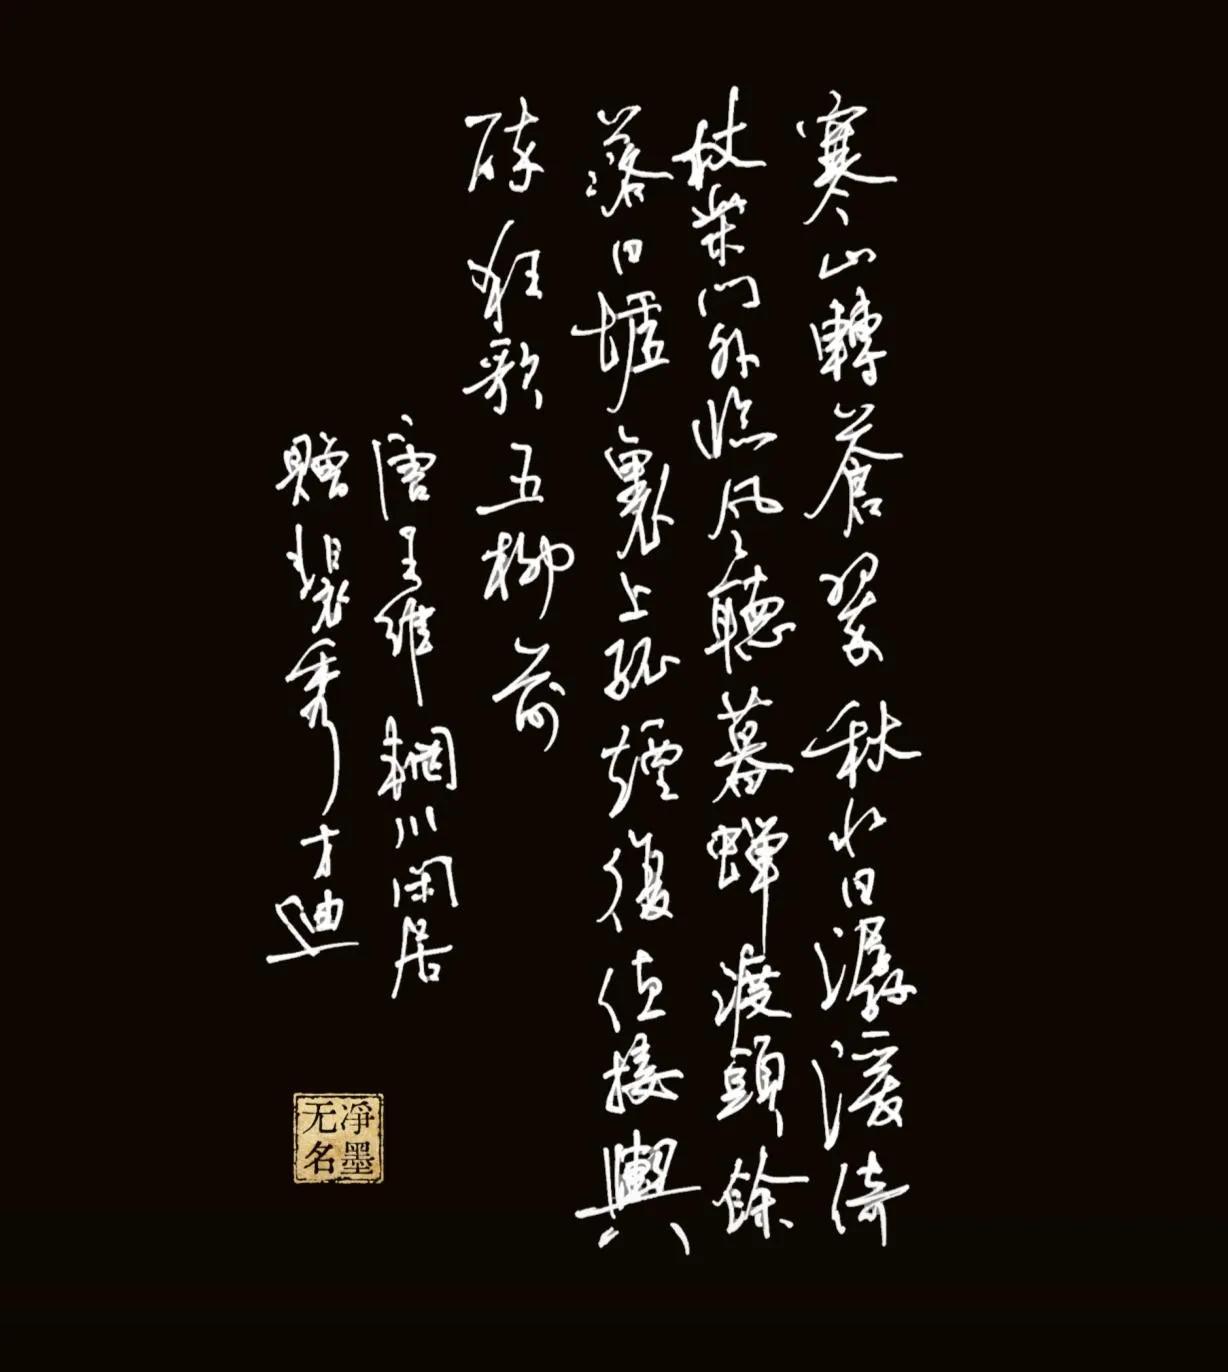 寒山轉蒼翠秋水日潺湲倚
杖柴門外臨風聽暮蟬渡頭餘
落日墟裏上孤煙復值接輿
醉狂歌五柳前
唐王維輞川閑居
贈裴秀才迪
凈墨
无名